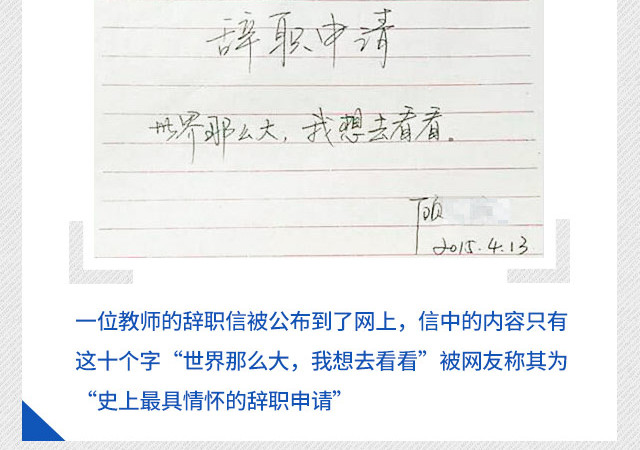 辞职申请
世界那么大，我想去看看。
顾
2015.4.13
一位教师的辞职信被公布到了网上，信中的内容只有
这十个字“世界那么大，我想去看看”被网友称其为
“史上最具情怀的辞职申请”